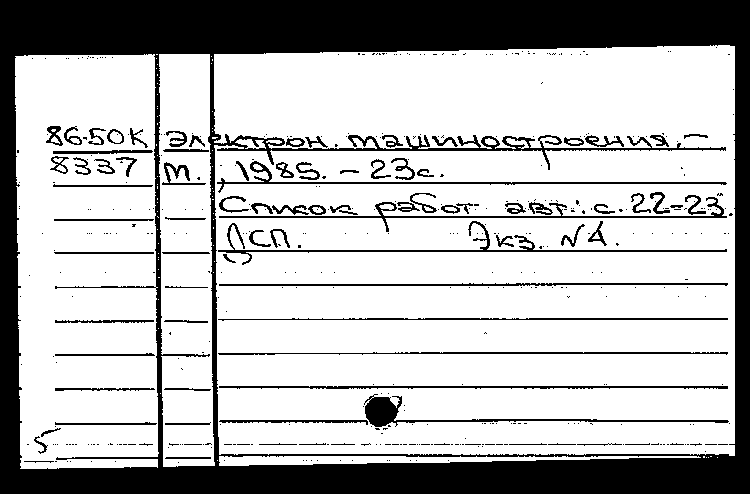 86-50К электрон. машиностроения. –
8337 М., 1985. – 23с.
Список работ авт.: с. 22-23.
ДСП. Экз. N4.
5